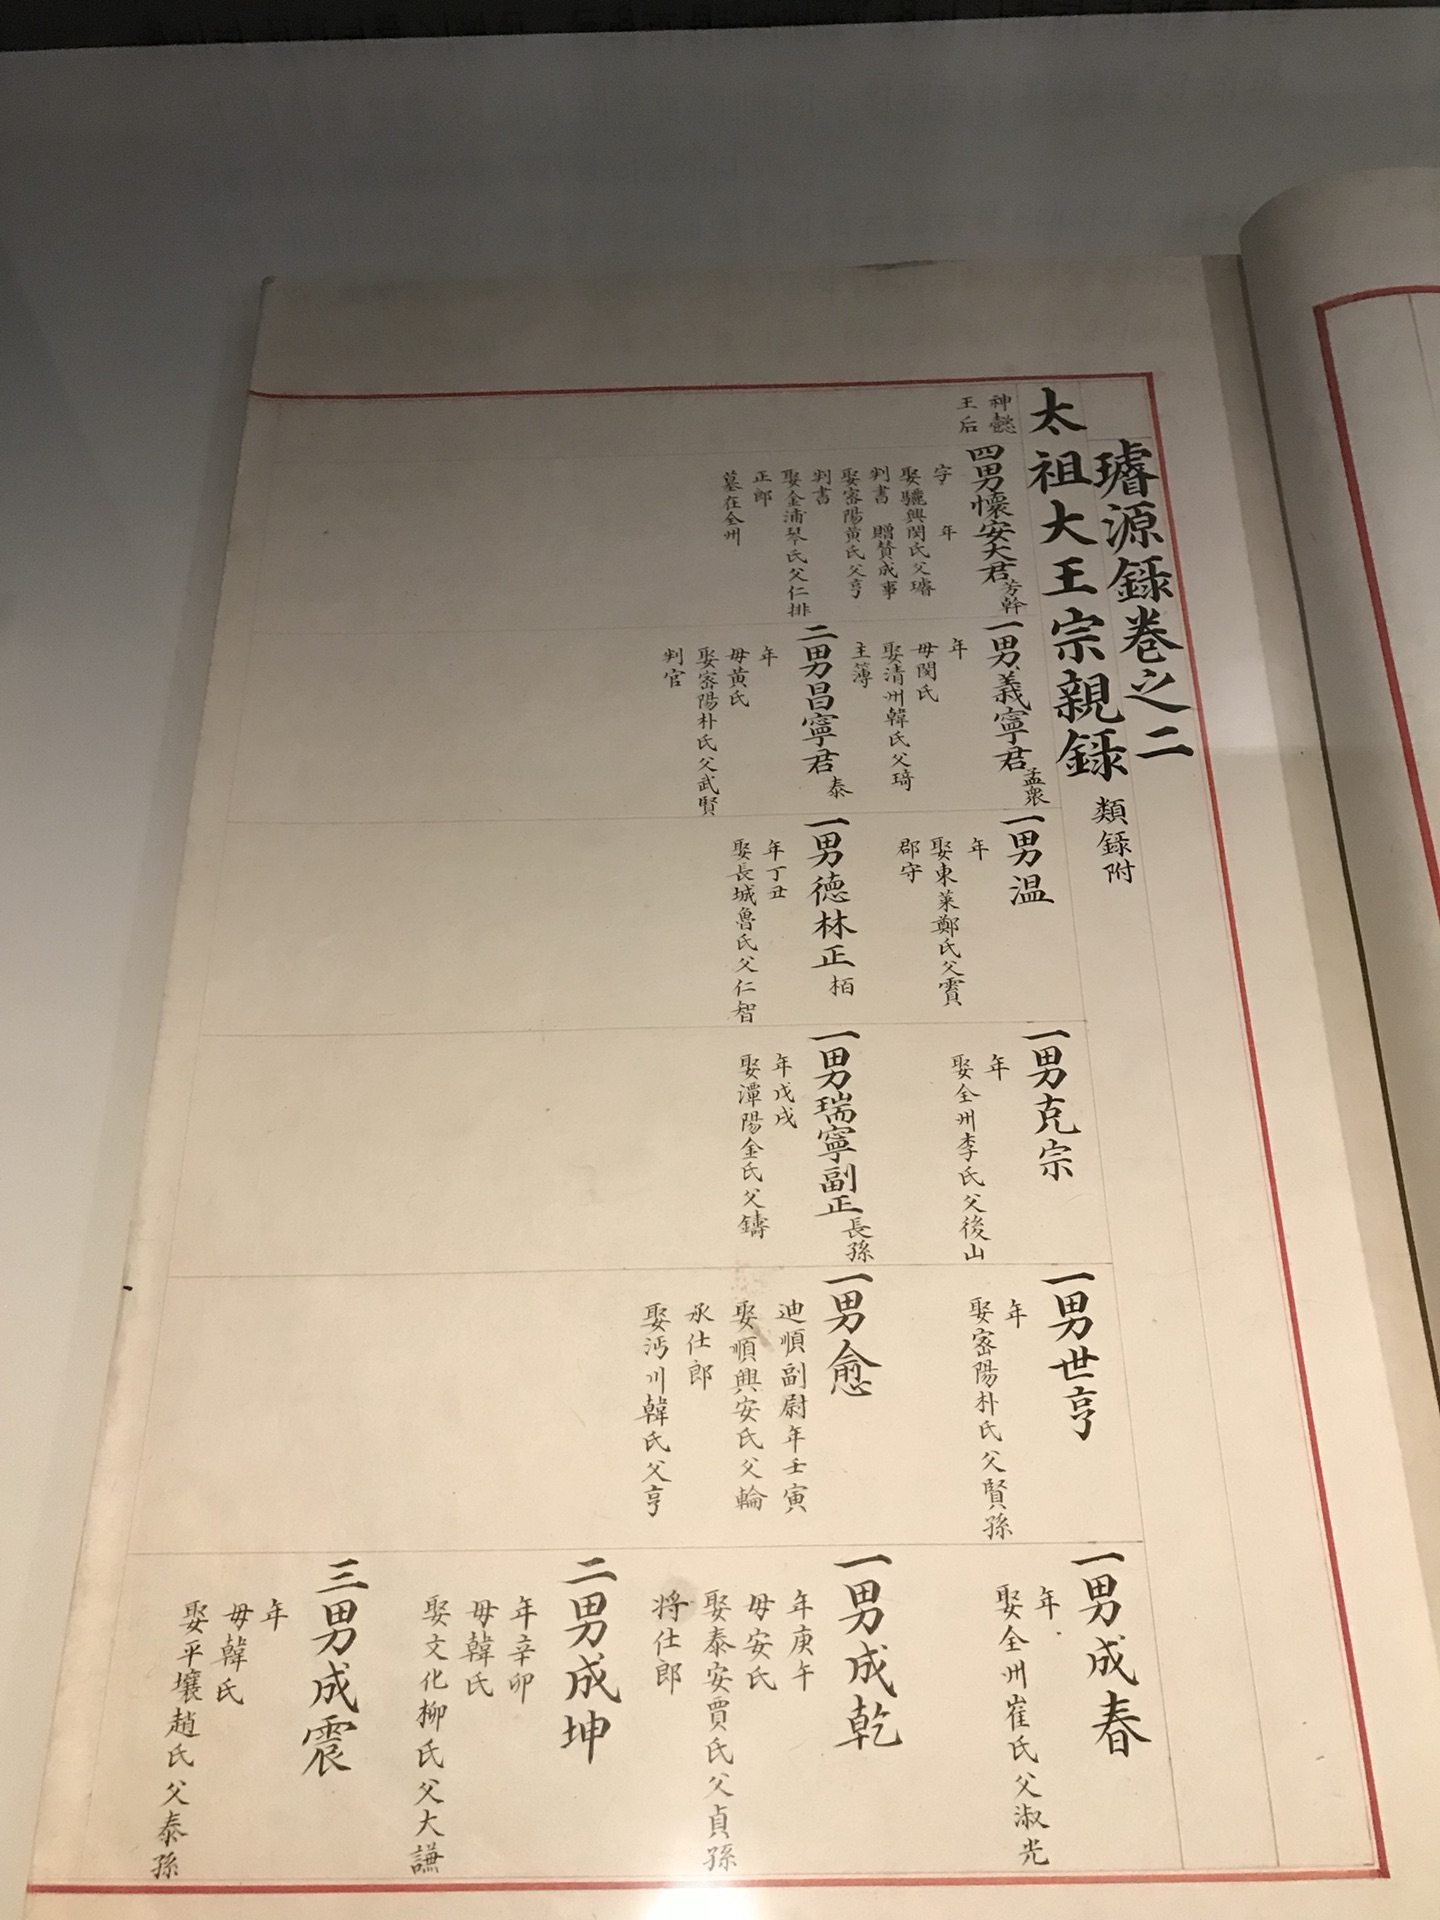 璿源錄卷之二
太祖大王宗親錄 類錄附
神懿
王后
四男懷安大君芳幹
字 年
娶驪興閔氏父璿
判書 贈贊成事
娶密陽黃氏父亨
判書
娶金浦琴氏父仁排
正郎
墓在全州
一男義寧君孟衆
年
母閔氏
娶清州韓氏父琦
主簿
二男昌寧君泰
年
母黃氏
娶密陽朴氏父武賢
判官
一男温
年
娶東萊鄭氏父賓
郡守
一男德林正栢
年丁丑
娶長城魯氏父仁智
一男克宗
年
娶全州李氏父後山
一男瑞寧副正長孫
年戊戌
娶潭陽金氏父鑄
一男世亨
年
娶密陽朴氏父賢孫
一男愈
迪順副尉年壬寅
娶順興安氏父輪
承仕郎
娶沔川韓氏父亨
一男成春
年
娶全州崔氏父淑光
一男成乾
年庚午
母安氏
娶泰安賈氏父貞孫
將仕郎
二男成坤
年辛卯
母韓氏
娶文化柳氏父大謙
三男成震
年
母韓氏
娶平壤趙氏父泰孫